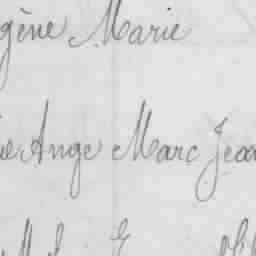 gène Marie
ie Ange Marc Jea